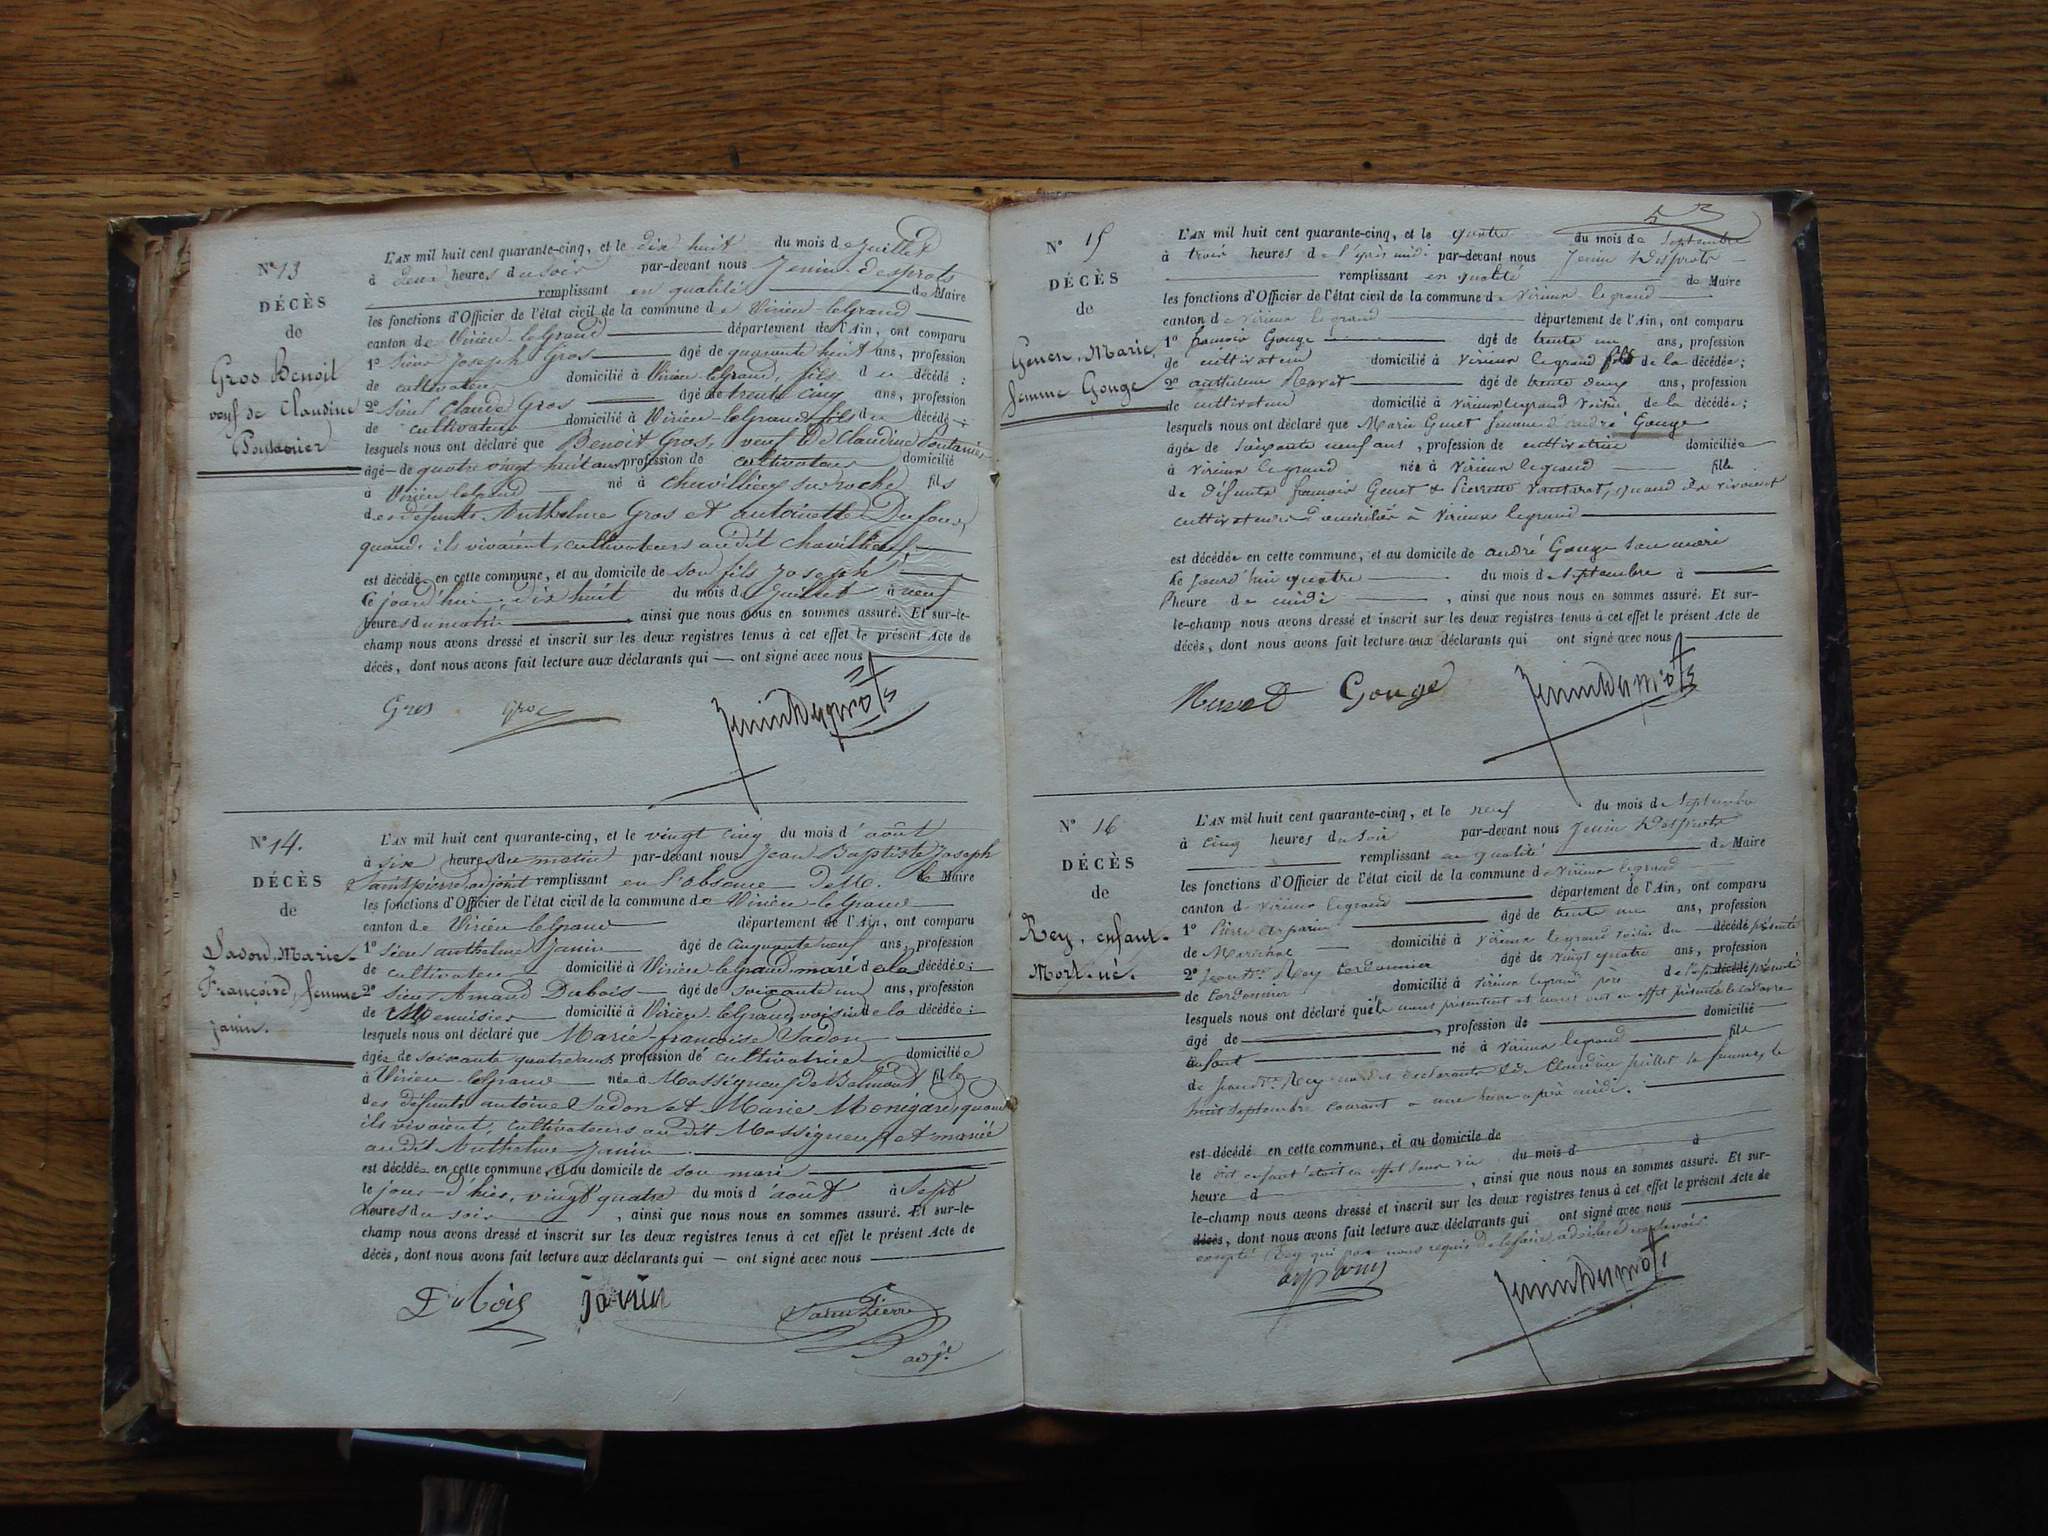 N° 13
DÉCÈS
de
Gros Benoit
veuf de Claudine
L'AN mil huit cent quarante-cinq, et le dix huit du mois de Juillet
à deux heures du soir par-devant nous Jenin
remplissant en qualité de Maire
les fonctions d'Officier de l'état civil de la commune de Virieu-leGrand
canton de Virieu-leGrand département de l'Ain, ont comparu
1° Sieur Joseph Gros âgé de quarante huit ans, profession
de cultivateur domicilié à Virieu leGrand, fils du décédé ;
2° Sieur Claude Gros âgé de trente cinq ans, profession
de cultivateur domicilié à Virieu-leGrand fils du décédé ;
lesquels nous ont déclaré que Benoit Gros, veuf de Claudine
âgé de quatre vingt huit ans profession de cultivateur domicilié
à Virieu leGrand né à fils
des défunts Anthelme Gros et Antoinette Dufour,
quand ils vivaient, cultivateurs audit
est décédé en cette commune, et au domicile de son fils Joseph
le jourd'hui dix huit du mois de Juillet à neuf
heures du matin ainsi que nous nous en sommes assuré. Et sur-le-
champ nous avons dressé et inscrit sur les deux registres tenus à cet effet le présent Acte de
décès, dont nous avons fait lecture aux déclarants qui ont signé avec nous
Gros Gros
N° 14.
DÉCÈS
de
Sadon, Marie-
Françoise, femme
Janin.
L'AN mil huit cent quarante-cinq, et le vingt cinq du mois d'août
à six heures du matin par-devant nous Jean Baptiste Joseph
Saintpierre, adjoint remplissant en l'absence de M. le Maire
les fonctions d'Officier de l'état civil de la commune de Virieu-leGrand
canton de Virieu leGrand département de l'Ain, ont comparu
1° Sieur anthelme Janin âgé de cinquante neuf ans, profession
de cultivateur domicilié à Virieu-leGrand, mari de la décédée ;
2° Sieur Amand Dubois âgé de soixante un ans, profession
de Menuisier domicilié à Virieu-leGrand, voisin de la décédée ;
lesquels nous ont déclaré que Marie-françoise Sadon
âgée de soixante quatre ans profession de cultivatrice domiciliée
à Virieu-leGrand née à Massigneux de Belmont fille
des défunts antoine Sadon et Marie Monigard, quand
ils vivaient, cultivateurs audit Massigneux et mariée
audit Anthelme Janin
est décédée en cette commune, et au domicile de son mari
le jour d'hier, vingt quatre du mois d'août à Sept
heures du soir, ainsi que nous nous en sommes assuré. Et sur-le-
champ nous avons dressé et inscrit sur les deux registres tenus à cet effet le présent Acte de
décès, dont nous avons fait lecture aux déclarants qui ont signé avec nous
Dubois Janin SaintPierre
adjt.
N° 15
DÉCÈS
de
Genet, Marie,
femme Gouge
L'AN mil huit cent quarante-cinq, et le quatre du mois de Septembre
à trois heures de l'après midi par-devant nous Jenin
remplissant en qualité de Maire
les fonctions d'Officier de l'état civil de la commune de Virieux legrand
canton de Virieux legrand département de l'Ain, ont comparu
1° françois Gouge âgé de trente un ans, profession
de cultivateur domicilié à Virieux legrand fils de la décédée ;
2° anthelme âgé de trente deux ans, profession
de cultivateur domicilié à Virieux legrand voisin de la décédée ;
lesquels nous ont déclaré que Marie Genet femme d'andré Gouge
âgée de soixante neuf ans, profession de cultivatrice domiciliée
à Virieux legrand née à Virieux legrand fille
de défunts françois Genet & Pierrette quand ils vivoient
cultivateurs domiciliés à Virieux legrand
est décédée en cette commune, et au domicile de andré Gouge son mari
le jourd'hui quatre du mois de septembre à
l'heure de midi, ainsi que nous nous en sommes assuré. Et sur-
le-champ nous avons dressé et inscrit sur les deux registres tenus à cet effet le présent Acte de
décès, dont nous avons fait lecture aux déclarants qui ont signé avec nous
Gouge
N° 16
DÉCÈS
de
Rey, enfant
Mort-né.
L'AN mil huit cent quarante-cinq, et le neuf du mois de Septembre
à cinq heures du soir par-devant nous Jenin
remplissant en qualité de Maire
les fonctions d'Officier de l'état civil de la commune de Virieux legrand
canton de Virieux legrand département de l'Ain, ont comparu
1° Pierre âgé de trente un ans, profession
de Maréchal domicilié à Virieux legrand voisin du décédé présenté
2° Rey Cordonnier âgé de vingt quatre ans, profession
de Cordonnier domicilié à Virieux legrand père de l'enfant décédé présenté
lesquels nous ont déclaré qu'ils nous présentent et nous ont en effet présenté le cadavre
âgé de profession de domicilié
enfant né à Virieux legrand fils
de Rey et de Claudine sa femme, le
huit septembre courant à une heure après midi.
est décédé en cette commune, et au domicile de
le dit enfant était en effet sans vie du mois d à
heure d, ainsi que nous nous en sommes assuré. Et sur-
le-champ nous avons dressé et inscrit sur les deux registres tenus à cet effet le présent Acte de
décès, dont nous avons fait lecture aux déclarants qui ont signé avec nous
excepté Rey qui par nous requis de le faire, a déclaré ne savoir